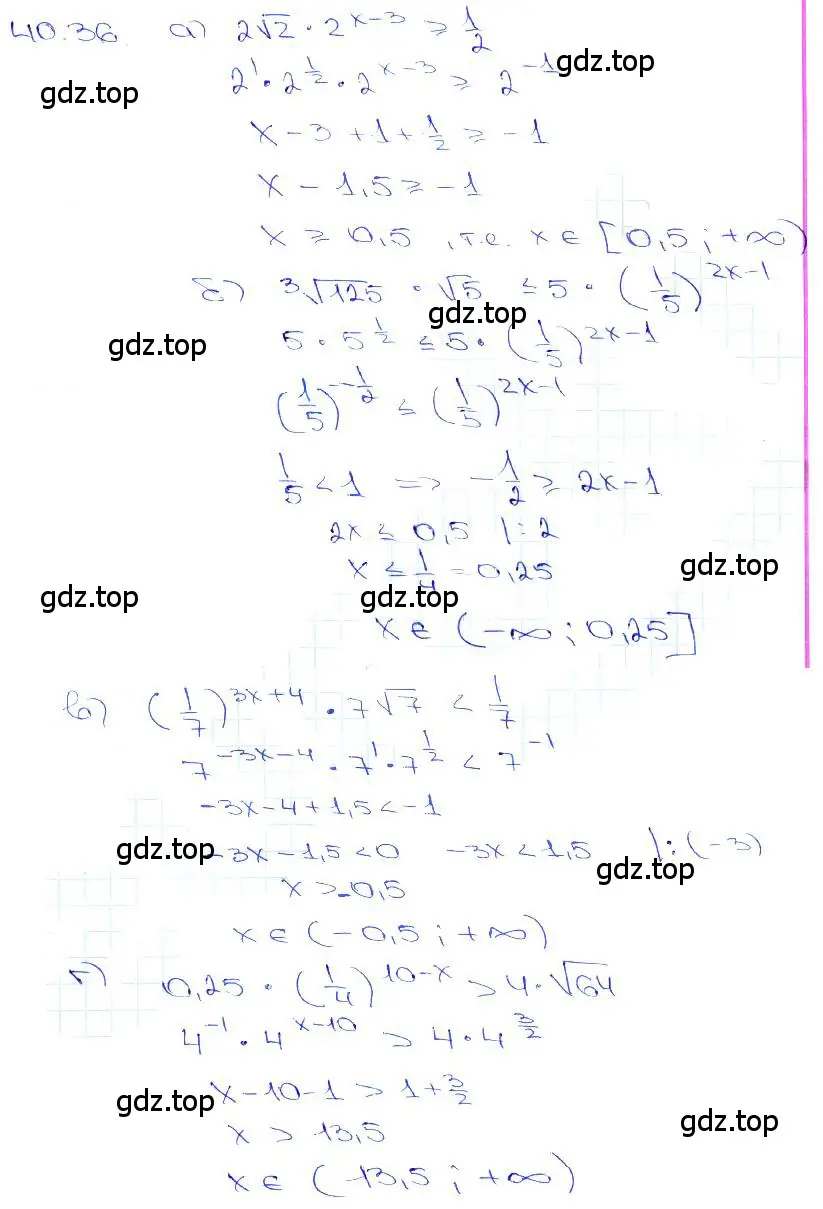 40.36 а) 2√2 · 2^(x-3) ≥ 1/2
2^1 · 2^(1/2) · 2^(x-3) ≥ 2^(-1) gdz.top
gdz.top
x - 3 + 1 + 1/2 ≥ -1
x - 1,5 ≥ -1
x ≥ 0,5, т.е. x ∈ [0,5; +∞)
б) ³√125 · √5 ≤ 5 · (1/5)^(2x-1)
gdz.top
5 · 5^(1/2) ≤ 5 · (1/5)^(2x-1)
gdz.top
(1/5)^(-1/2) ≤ (1/5)^(2x-1)
1/5 < 1 => -1/2 ≥ 2x - 1
2x ≤ 0,5 |: 2
x ≤ 1/4 = 0,25 gdz.top
gdz.top gdz.top
x ∈ (-∞; 0,25]
в) (1/7)^(3x+4) · 7√7 < 1/7
7^(-3x-4) · 7^1 · 7^(1/2) < 7^(-1)
-3x - 4 + 1,5 < -1
gdz.top -3x - 1,5 < 0 -3x < 1,5 |: (-3)
gdz.top
x > -0,5
x ∈ (-0,5; +∞)
г) 0,25 · (1/4)^(10-x) > 4 · √64
4^(-1) · 4^(x-10) > 4 · 4^(3/2)
x - 10 - 1 > 1 + 3/2
gdz.top gdz.top
x > 13,5
x ∈ (13,5; +∞)